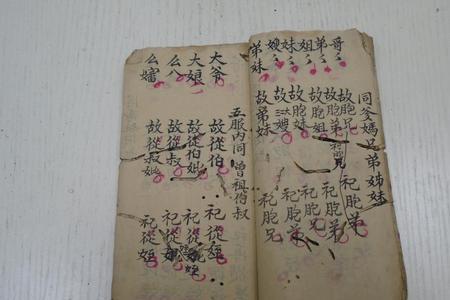 同爹媽兄弟姊妹
哥〻 故胞兄 祀胞弟
弟〻 故胞弟 祀胞兄
姐〻 故胞姐 祀胞弟
妹〻 故胞妹
嫂〻 故大嫂 祀胞弟
弟妹 故弟妹 祀胞兄
五服内同曾祖伯叔
大爷 故從伯 祀從姪
大娘 故從伯 祀從姪
么八 故從叔 祀從姪
么嬸 故從叔 祀從姪